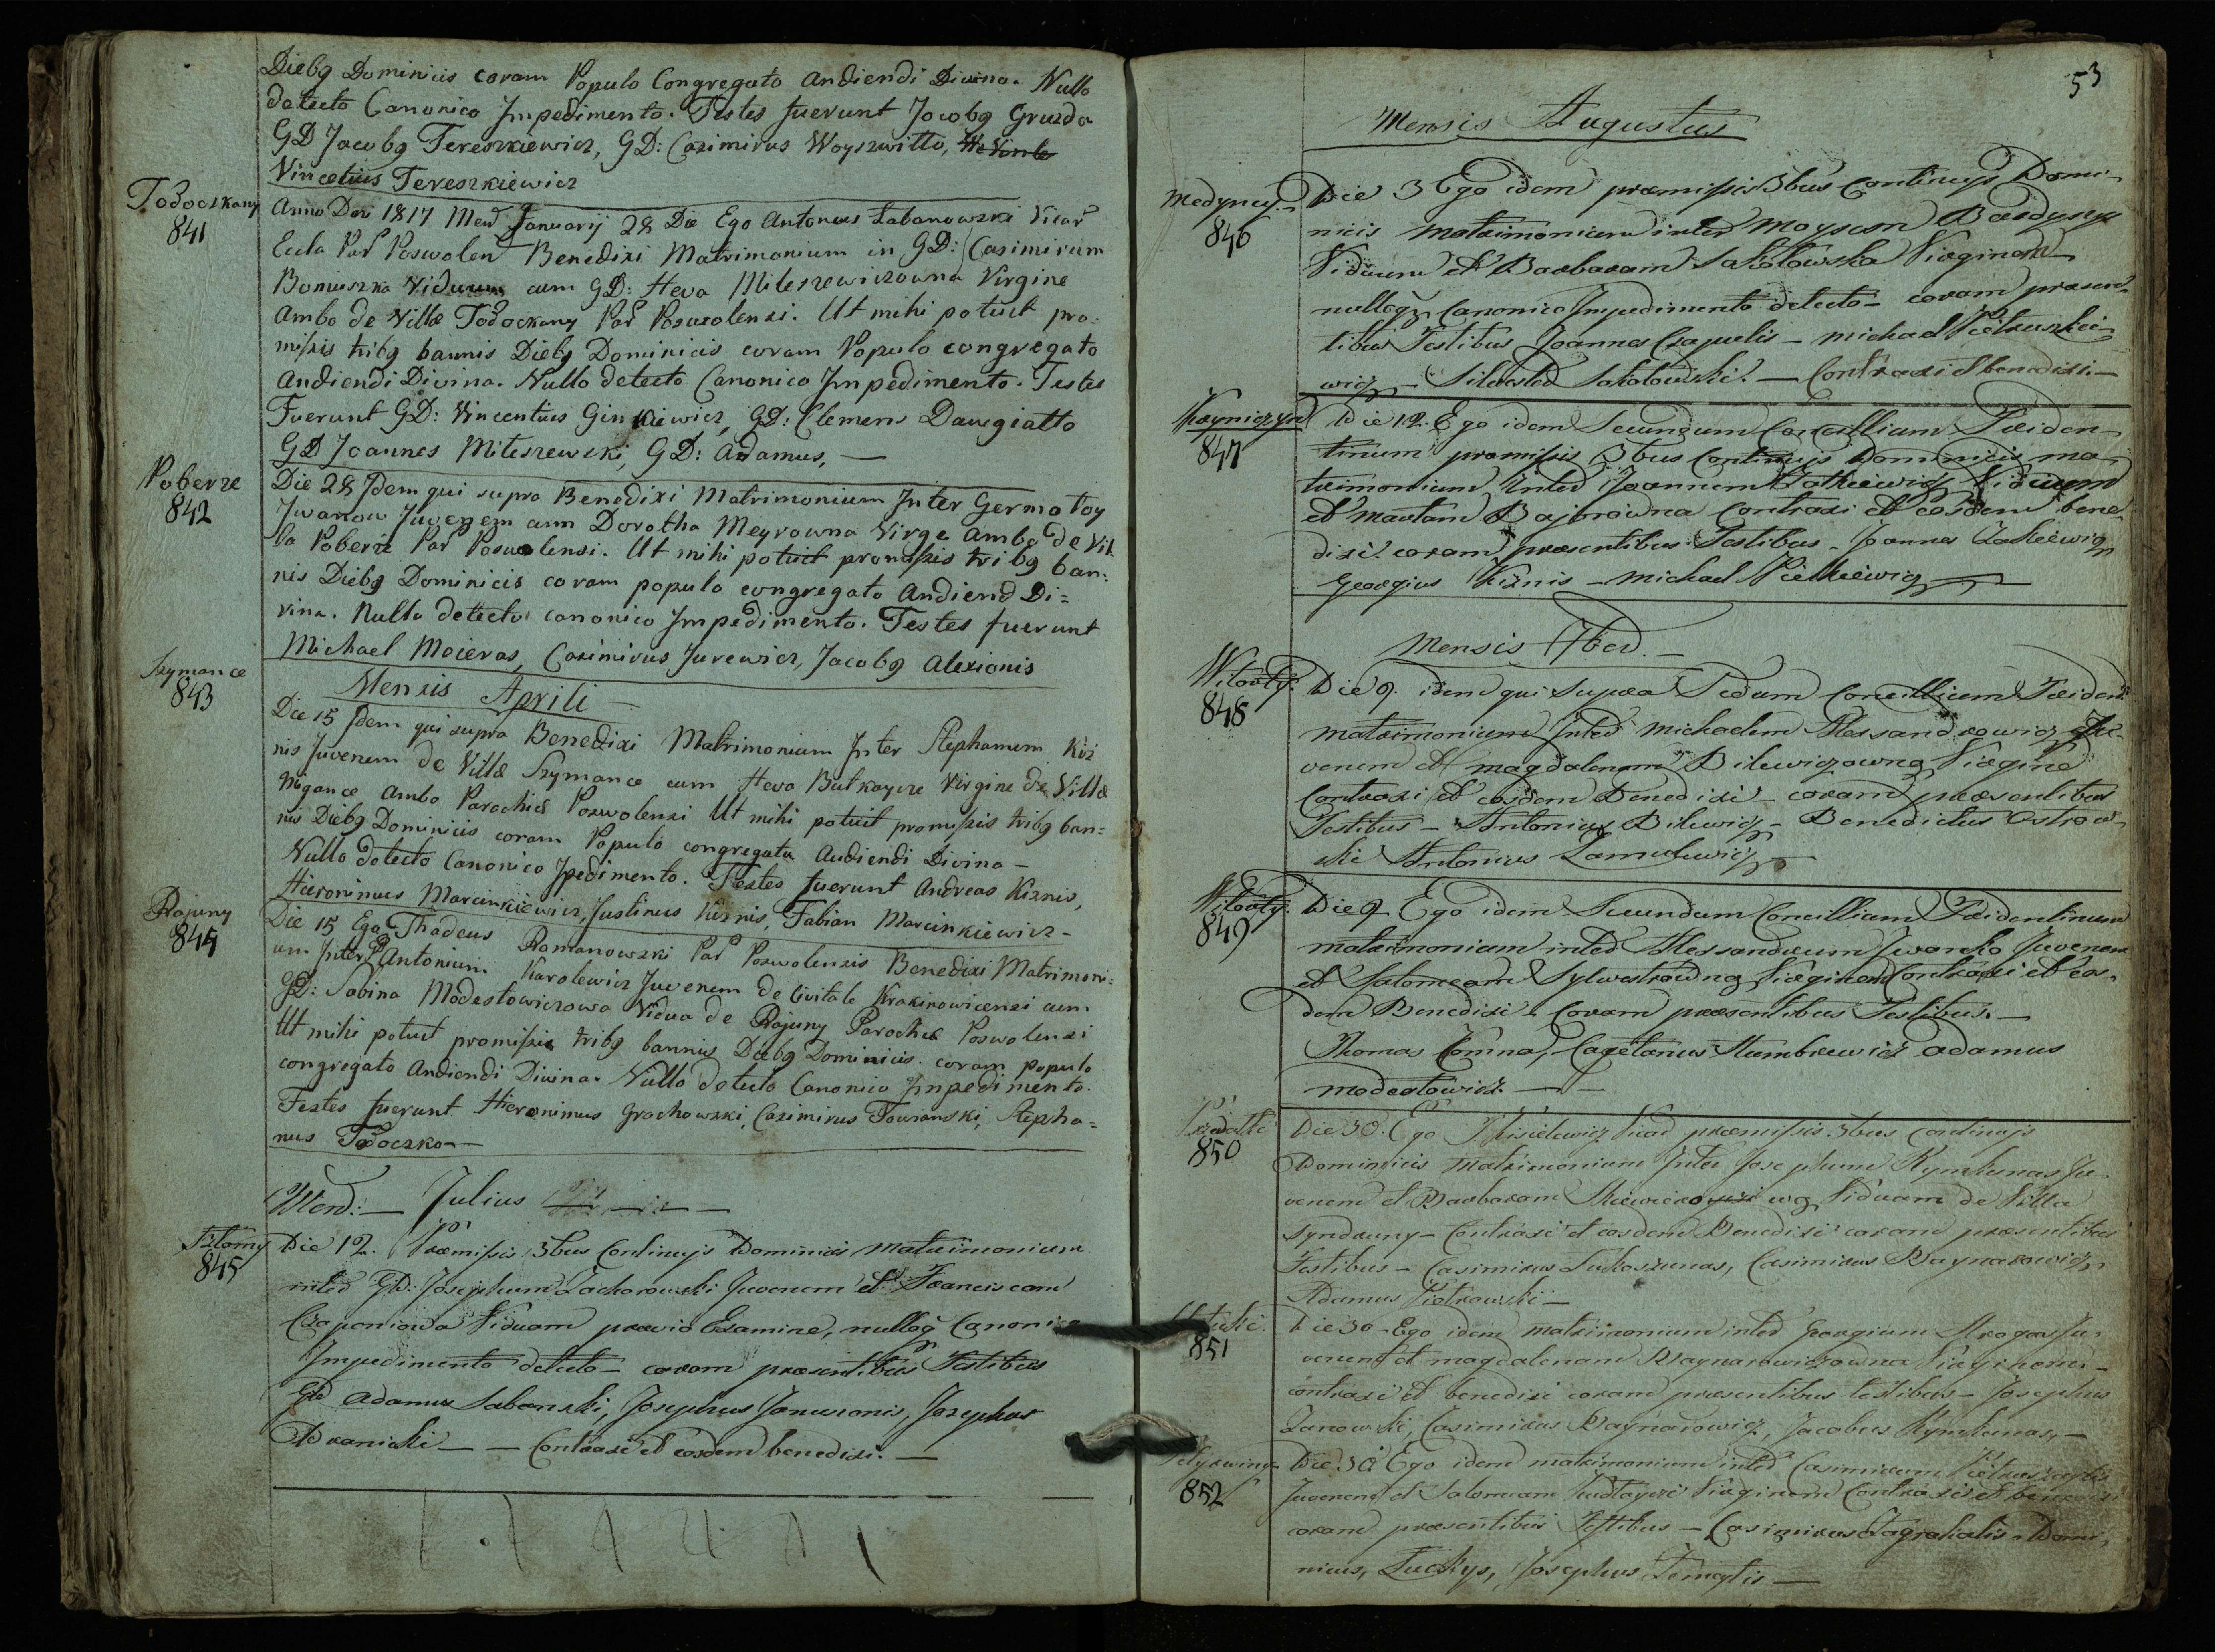 Diebg Dominicis coram Populo Congregato Audiendi Divina. Nullo
detecto Canonico Impedimento. Testes fuerunt Jacobg Gruzda
GD Jacobg Tereszkiewicz, GD: Casimirus Woyszwitto,
Vincetius Tereszkiewicz
Todoczkany
841
Anno Dni 1817 Mens Januarij 28 Die Ego Antonius Łabanowski Vicar
Eccla Par Poswolen Benedixi Matrimonium in GD: Casimirum
Bomuszka Viduum cum GD: Heva Mileszewiczowna Virgine
Ambo de Villa Todockany Par Poswolensi. Ut mihi potuit pro-
missis tribg bannis Diebg Dominicis coram Populo congregato
Audiendi Divina. Nullo detecto Canonico Impedimento. Testes
Fuerunt GD: Vincentius Ginkiewicz, GD: Clemens Daugiatto
GD Joannes Mileszewski, GD: Adamus, —
Poberze
842
Die 28 Idem qui supra Benedixi Matrimonium Inter Germatoy
Iwanow Juvenem cum Dorotha Meyrowna Virge Ambo de Vil
la Poberze Par Poswolensi. Ut mihi potuit promissis tribg ban:
nis Diebg Dominicis coram populo congregato Audiend Di=
vina. Nullo detecto canonico Impedimento. Testes fuerunt
Michael Moieras, Casimirus Jurewicz, Jacobg Alexionis
Szymance
843
Mensis Aprili —
Die 15 Idem qui supra Benedixi Matrimonium Inter Stephanum Kiź
nis Juvenem de Villa Szymance cum Heva Butkaycze Virgine de Villa
Migance Ambo Parochia Poswolensi Ut mihi potuit promissis tribg ban=
nis Diebg Dominicis coram Populo congregata Audiendi Divina —
Nullo detecto Canonico Ipedimento. Testes fuerunt Andreas Kiznis,
Hieronimus Marcinkiewicz, Justinus Kiznis, Fabian Marcinkiewicz —
Rajuny
845
Die 15 Ego Thadeus Romanowski Par Poswolensis Benedixi Matrimoni:
um Inter Antonium Karolewicz Juvenem de Civitate Krakinowicensi cum
GD: Sabina Modestowiczowa Vidua de Rajuny Parochia Poswolensi
Ut mihi potuit promissis tribg bannis Diebg Dominicis coram populo
congregato Audiendi Divina. Nullo detecto Canonico Impedimento.
Testes fuerunt Hieronimus Grochowski, Casimirus Towianski, Stepha=
nus Todoczko —
Mens: — Julius
845
Die 12. Præmissis 3bus Continujs Dominicis Matrimonium
inter GD: Josephum Zachorowski Juvenem et Franciscam
Czaponiowa Viduam prævio Examine, nulloq Canonico
Impedimento detecto — coram præsentibus Testibus
GD Adamus Sabanski, Josephus Januszonis, Josephus
Dranicki — — Contraxi et eosdem benedixi. —
53
Mensis Augustus
Medyncy.
846
Die 3 Ego idem præmissis 3bus Continujs Domi-
nicis Matrimonium inter Moysem
Viduum et Barbaram Sakołowska Virginem
nulloq Canonico Impedimento detecto — coram præsen-
tibus Testibus Joannes Czapulis — Michael Pietruszkie-
wicz — Silvester Sokołowski. — Contraxi et benedixi. —
847
Die 12. Ego idem Secundum Concillium Triden-
tinum præmissis 3bus Continujs Dominicis ma-
trimonium Inter Joannem Viduum
et Martam Bajorowna Contraxi et eosdem bene-
dixi coram præsentibus Testibus — Joannes
Georgius Kiznis — Michael Pietkiewicz —
Mensis 7ber. —
848
Die 9. idem qui Supra Secdum Concillium Trident:
matrimonium Inter Michaelem Alessandrowicz Ju-
venem et Magdalenam Bilewiczowna Virgine
Contraxi et eosdem Benedixi — coram præsentibus
Testibus — Antonius Bilewicz — Benedictus Ostrow-
ski Antonius
849
Die 9 Ego idem Secundum Concillium Tridentinum
matrimonium inter Alessandrum Iwanko Juvenem
et Salomeam Sylwestrowna Virginem Contraxi et eos-
dem Benedixi. Coram præsentibus Testibus. —
Thomas Comna, Cajetanus Adamus
Modestowicz. — —
850
Die 30. Ego Vicar præmissis 3bus continujs
Dominicis Matrimonium Inter Josephum Rymkunas Ju-
venem et Barbaram Viduam de Villa
Contraxi et eosdem Benedixi coram præsentibus
Testibus — Casimirus Lukoszunas, Casimirus Raynarowicz,
Adamus Piotrowski —
851
Die 30 — Ego idem Matrimonium inter Georgium Ju-
venem et Magdalenam Raynarowiczowna Virginem —
contraxi et benedixi coram præsentibus testibus — Josephus
Janowski, Casimirus Raynarowicz, Jacobus Rymkunas, —
852
Die 30 Ego idem matrimonium inter Casimirum
Juvenem et Salomeam Virginem Contraxi et
coram præsentibus Testibus — Casimirus Domi-
nicus, Josephus